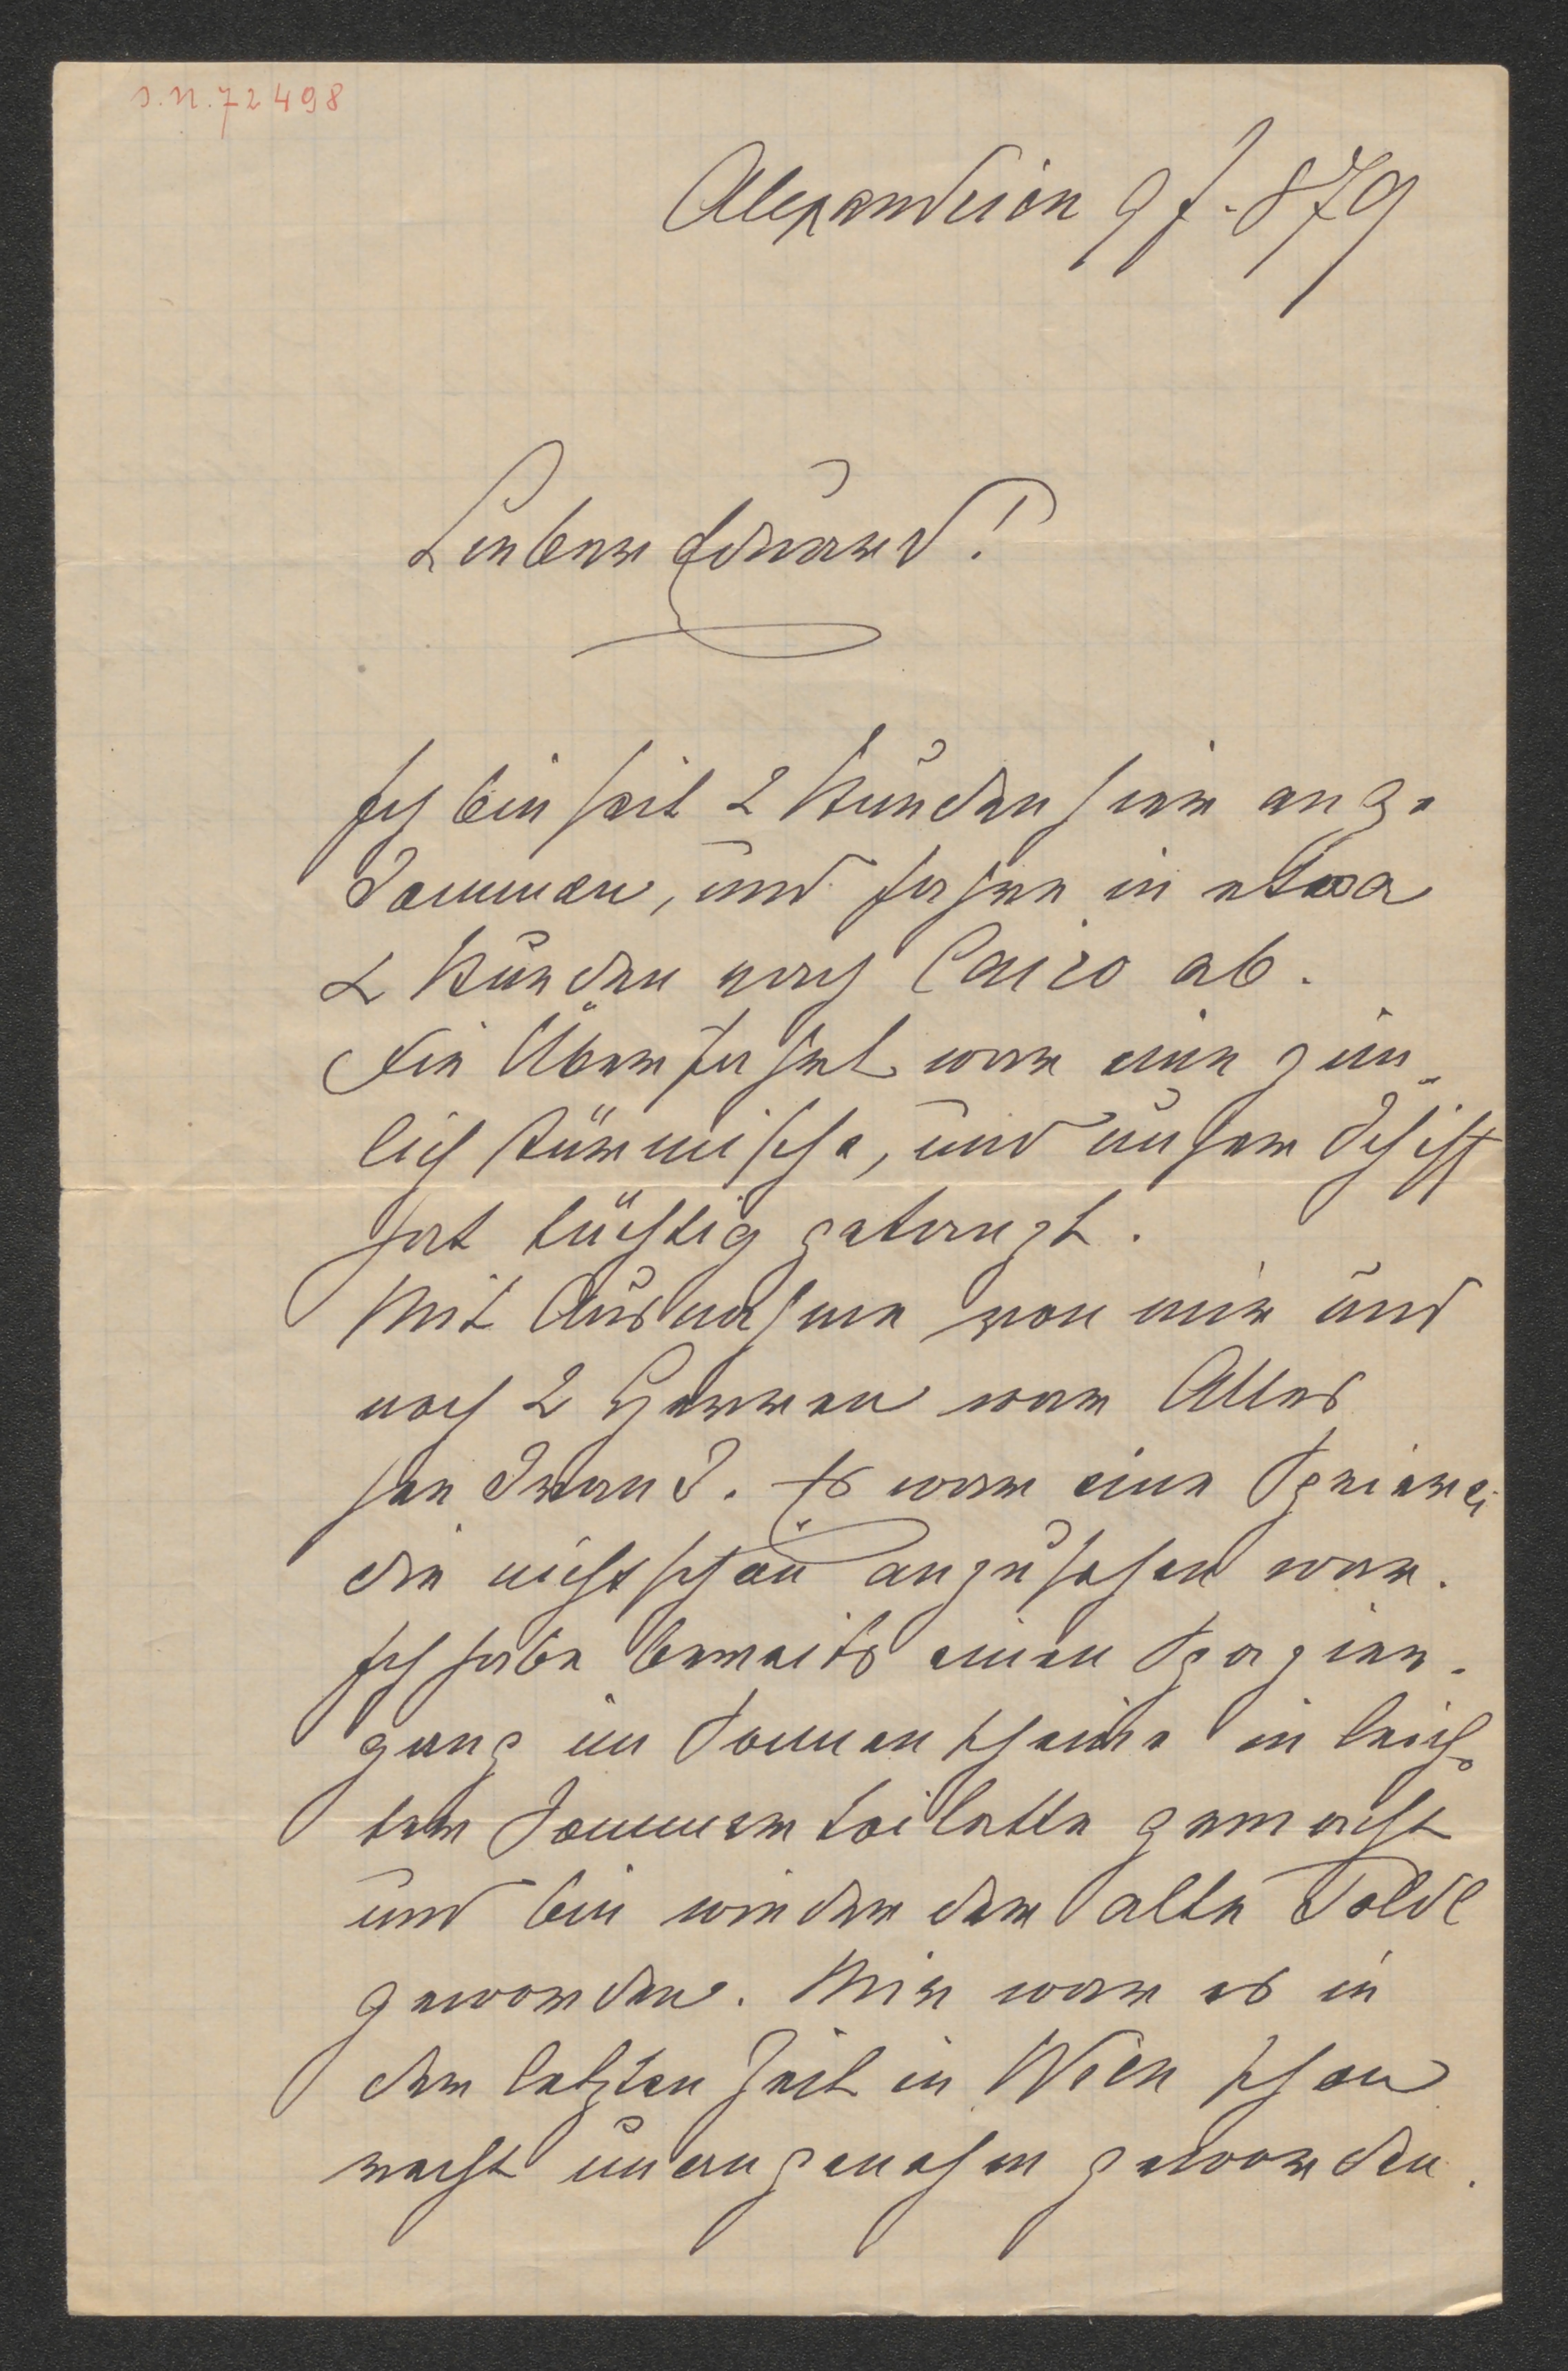 J.N. 72498
Alexandrien 9 f. 879
Lieber Eduard!
Ich bin seit 2 Stunden hier ange
kommen, und fahre in etwa
2 Stunden nach Cairo ab.
Die Überfahrt war eine ziem
lich stürmische, und unser Schiff
hat tüchtig getanzt.
Mit Ausnahme von mir und
noch 2 Herren war Alles
seekrank. Es war eine Speierei
die nicht schön anzusehen war.
Ich habe bereits einen Spazier-
gang im Sonnenscheine in leich
ter Sommertoilette gemacht
und bin wieder der alte Poldl
geworden. Mir war es in
der letzten Zeit in Wien schon
recht unangenehm geworden.